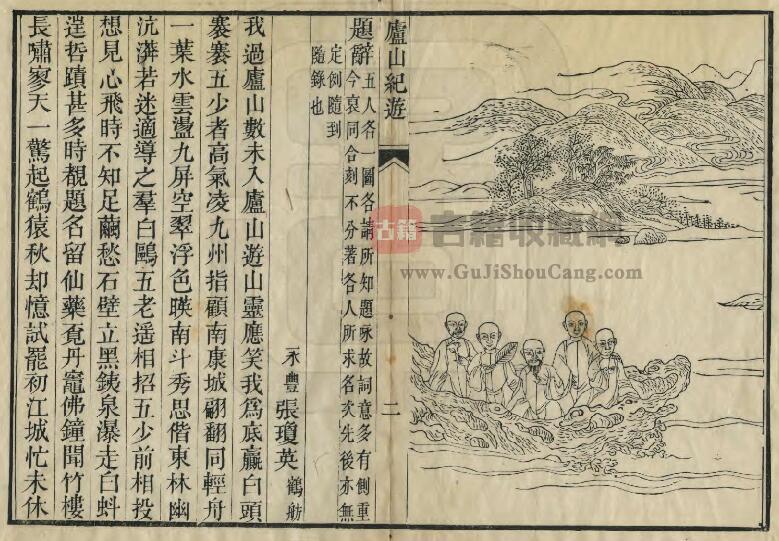 廬山紀遊
二
題辭
五人各一圖各請所知題咏故詞意多有側重
今裒同合刻不分著各人所求名次先後亦無
定例隨到
隨錄也
永豐張瓊英鶴舫
我過廬山數未入廬山遊山靈應笑我爲底贏白頭
褰褰五少者高氣凌九州指顧南康城翩翩同輕舟
一葉水雲盪九屏空翠浮色暎南斗秀思偕東林幽
沆漭若迷適導之羣白鷗五老遥相招五少前相投
想見心飛時不知足繭愁石壁立黑鐵泉瀑走白蚪
逹哲蹟甚多時覩題名留仙藥覔丹竈佛鐘聞竹樓
長嘯寥天一驚起鶴猿秋却憶試罷初江城忙未休
古籍
古籍收藏網
www.GuJiShouCang.com